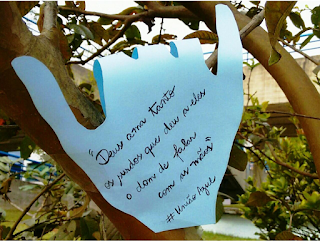 "Deus ama tanto
os surdos que deu a eles
o dom de falar
com as mãos"
#União Azul